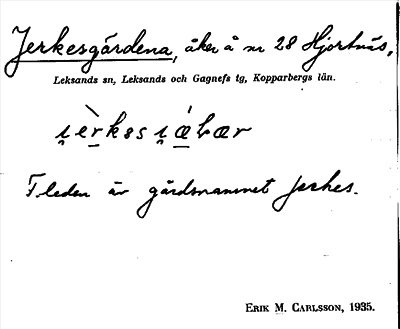 Jerkesgårdena, åker å nr 28 Hjortnäs,
Leksands sn, Leksands och Gagnefs tg, Kopparbergs län.
F leden är gårdsnamnet Jerkes.
ERIK M. CARLSSON, 1935.